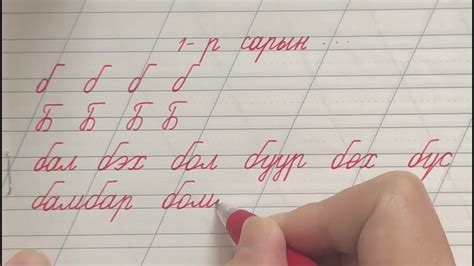 1-р сарын ...
б б б б
Б Б Б Б
бал бэх бол буур бөх бүс
бамбар бом